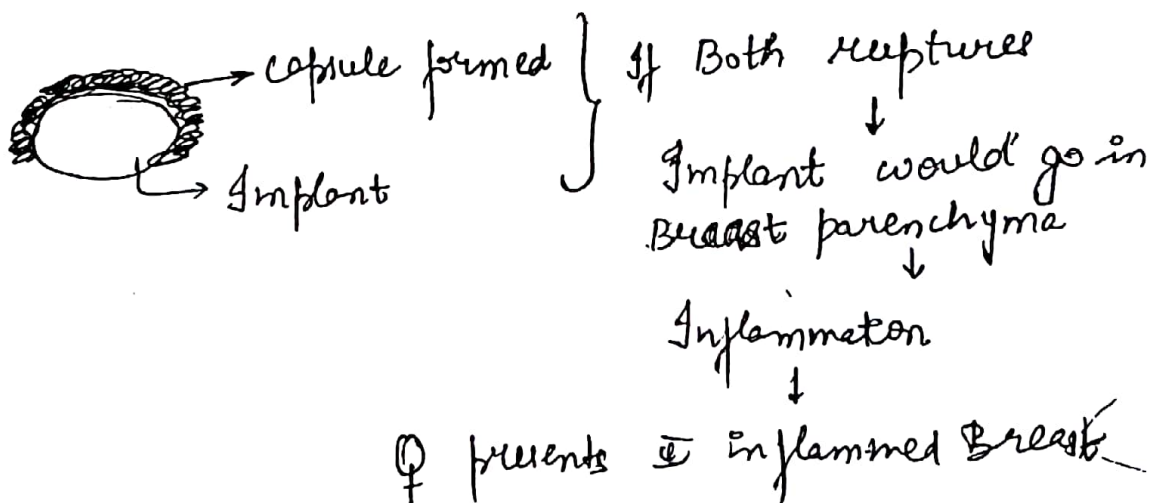 capsule formed
Implant
If Both ruptures
↓
Implant would go in
Breast parenchyma
↓
Inflammation
↓
♀ presents c̄ inflammed Breast